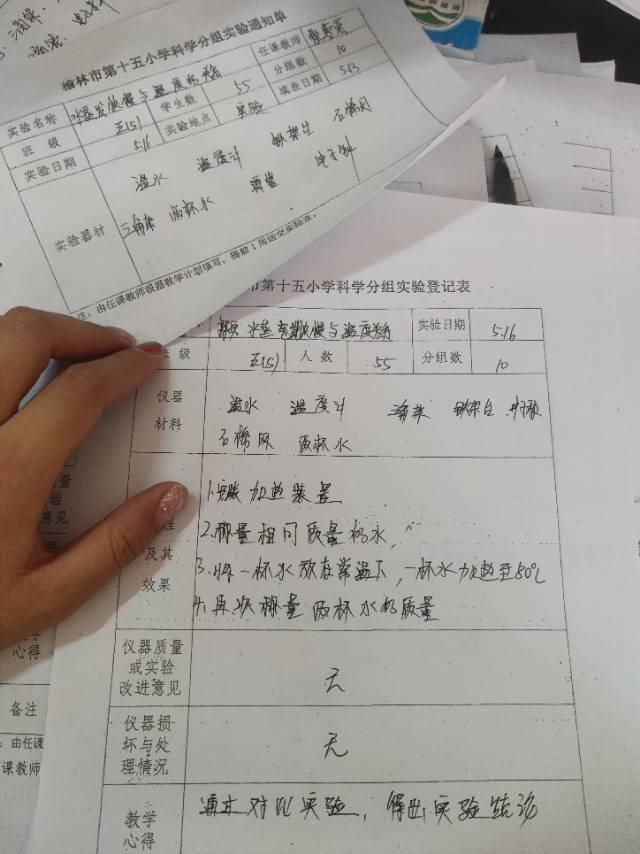 榆林市第十五小学科学分组实验通知单
实验名称 水蒸发快慢与温度关系 任课教师
班级 五(5) 学生数 55 分组数 10
实验日期 5.16 实验地点 实验 填表日期 5.13
实验器计 温水 温度计 铁架台 石棉网
三角架 两杯水
注：由任课教师根据教学计划填写，提前1周送交实验室。
市第十五小学科学分组实验登记表
水蒸发快慢与温度关系 实验日期 5.16
班级 五(5) 人数 55 分组数 10
仪器材料 温水 温度计 三角架 铁架台
石棉网 两杯水
及其效果
1.安装加热装置
2.称量相同质量的水，
3.将一杯水放在常温下，一杯水加热至50℃
4.再次称量两杯水的质量
仪器质量或实验改进意见 无
仪器损坏与处理情况 无
教学心得 通过对比实验，得出实验结论
意见
心得
备注
：由任课
课教师